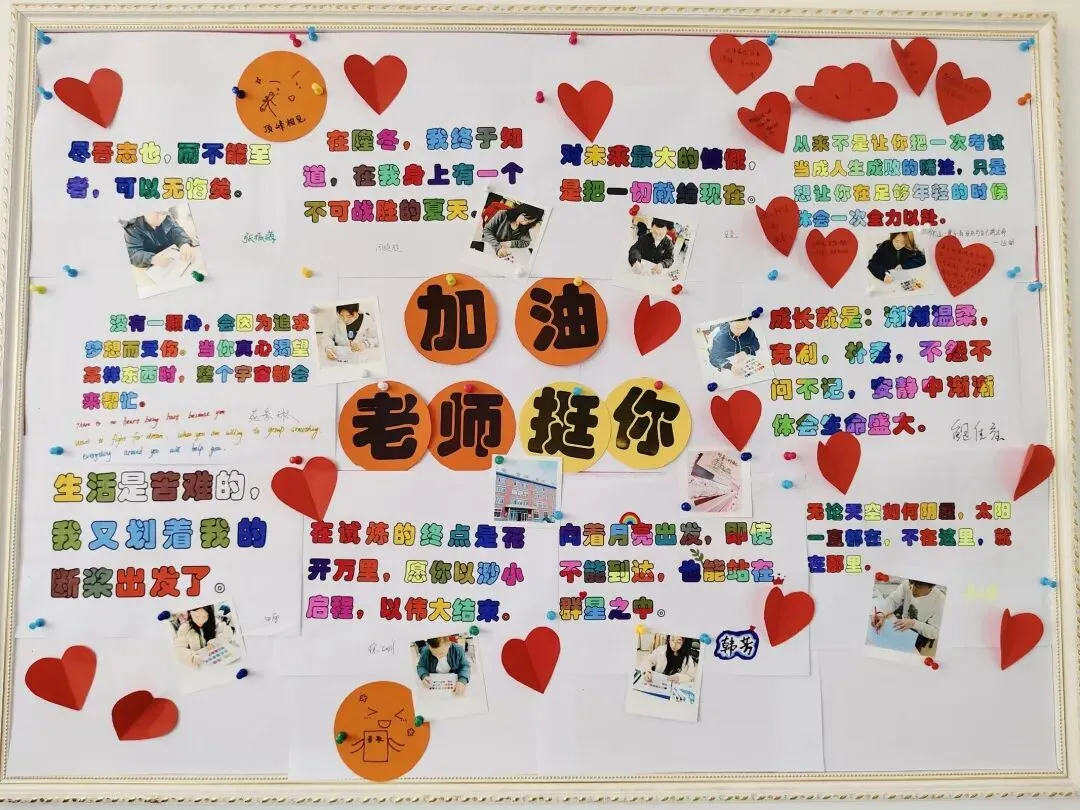 顶峰相见
尽吾志也，而不能至
者，可以无悔矣。
在隆冬，我终于知
道，在我身上有一个
不可战胜的夏天。
对未来最大的慷慨，
是把一切献给现在。
从来不是让你把一次考试
当成人生成败的赌注，只是
想让你在足够年轻的时候
体会一次全力以赴。
加油
老师挺你
没有一颗心，会因为追求
梦想而受伤。当你真心渴望
某样东西时，整个宇宙都会
来帮忙。
There is no heart being hurt because you
want to fight for dream. When you are willing to grasp something
everything around you will help you.
成长就是：渐渐温柔，
克制，朴素，不怨不
问不记，安静中渐渐
体会生命盛大。
生活是苦难的，
我又划着我的
断桨出发了。
在试炼的终点是花
开万里，愿你以渺小
启程，以伟大结束。
向着月亮出发，即使
不能到达，也能站在
群星之中。
韩芳
无论天空如何阴霾，太阳
一直都在，不在这里，就
在那里。